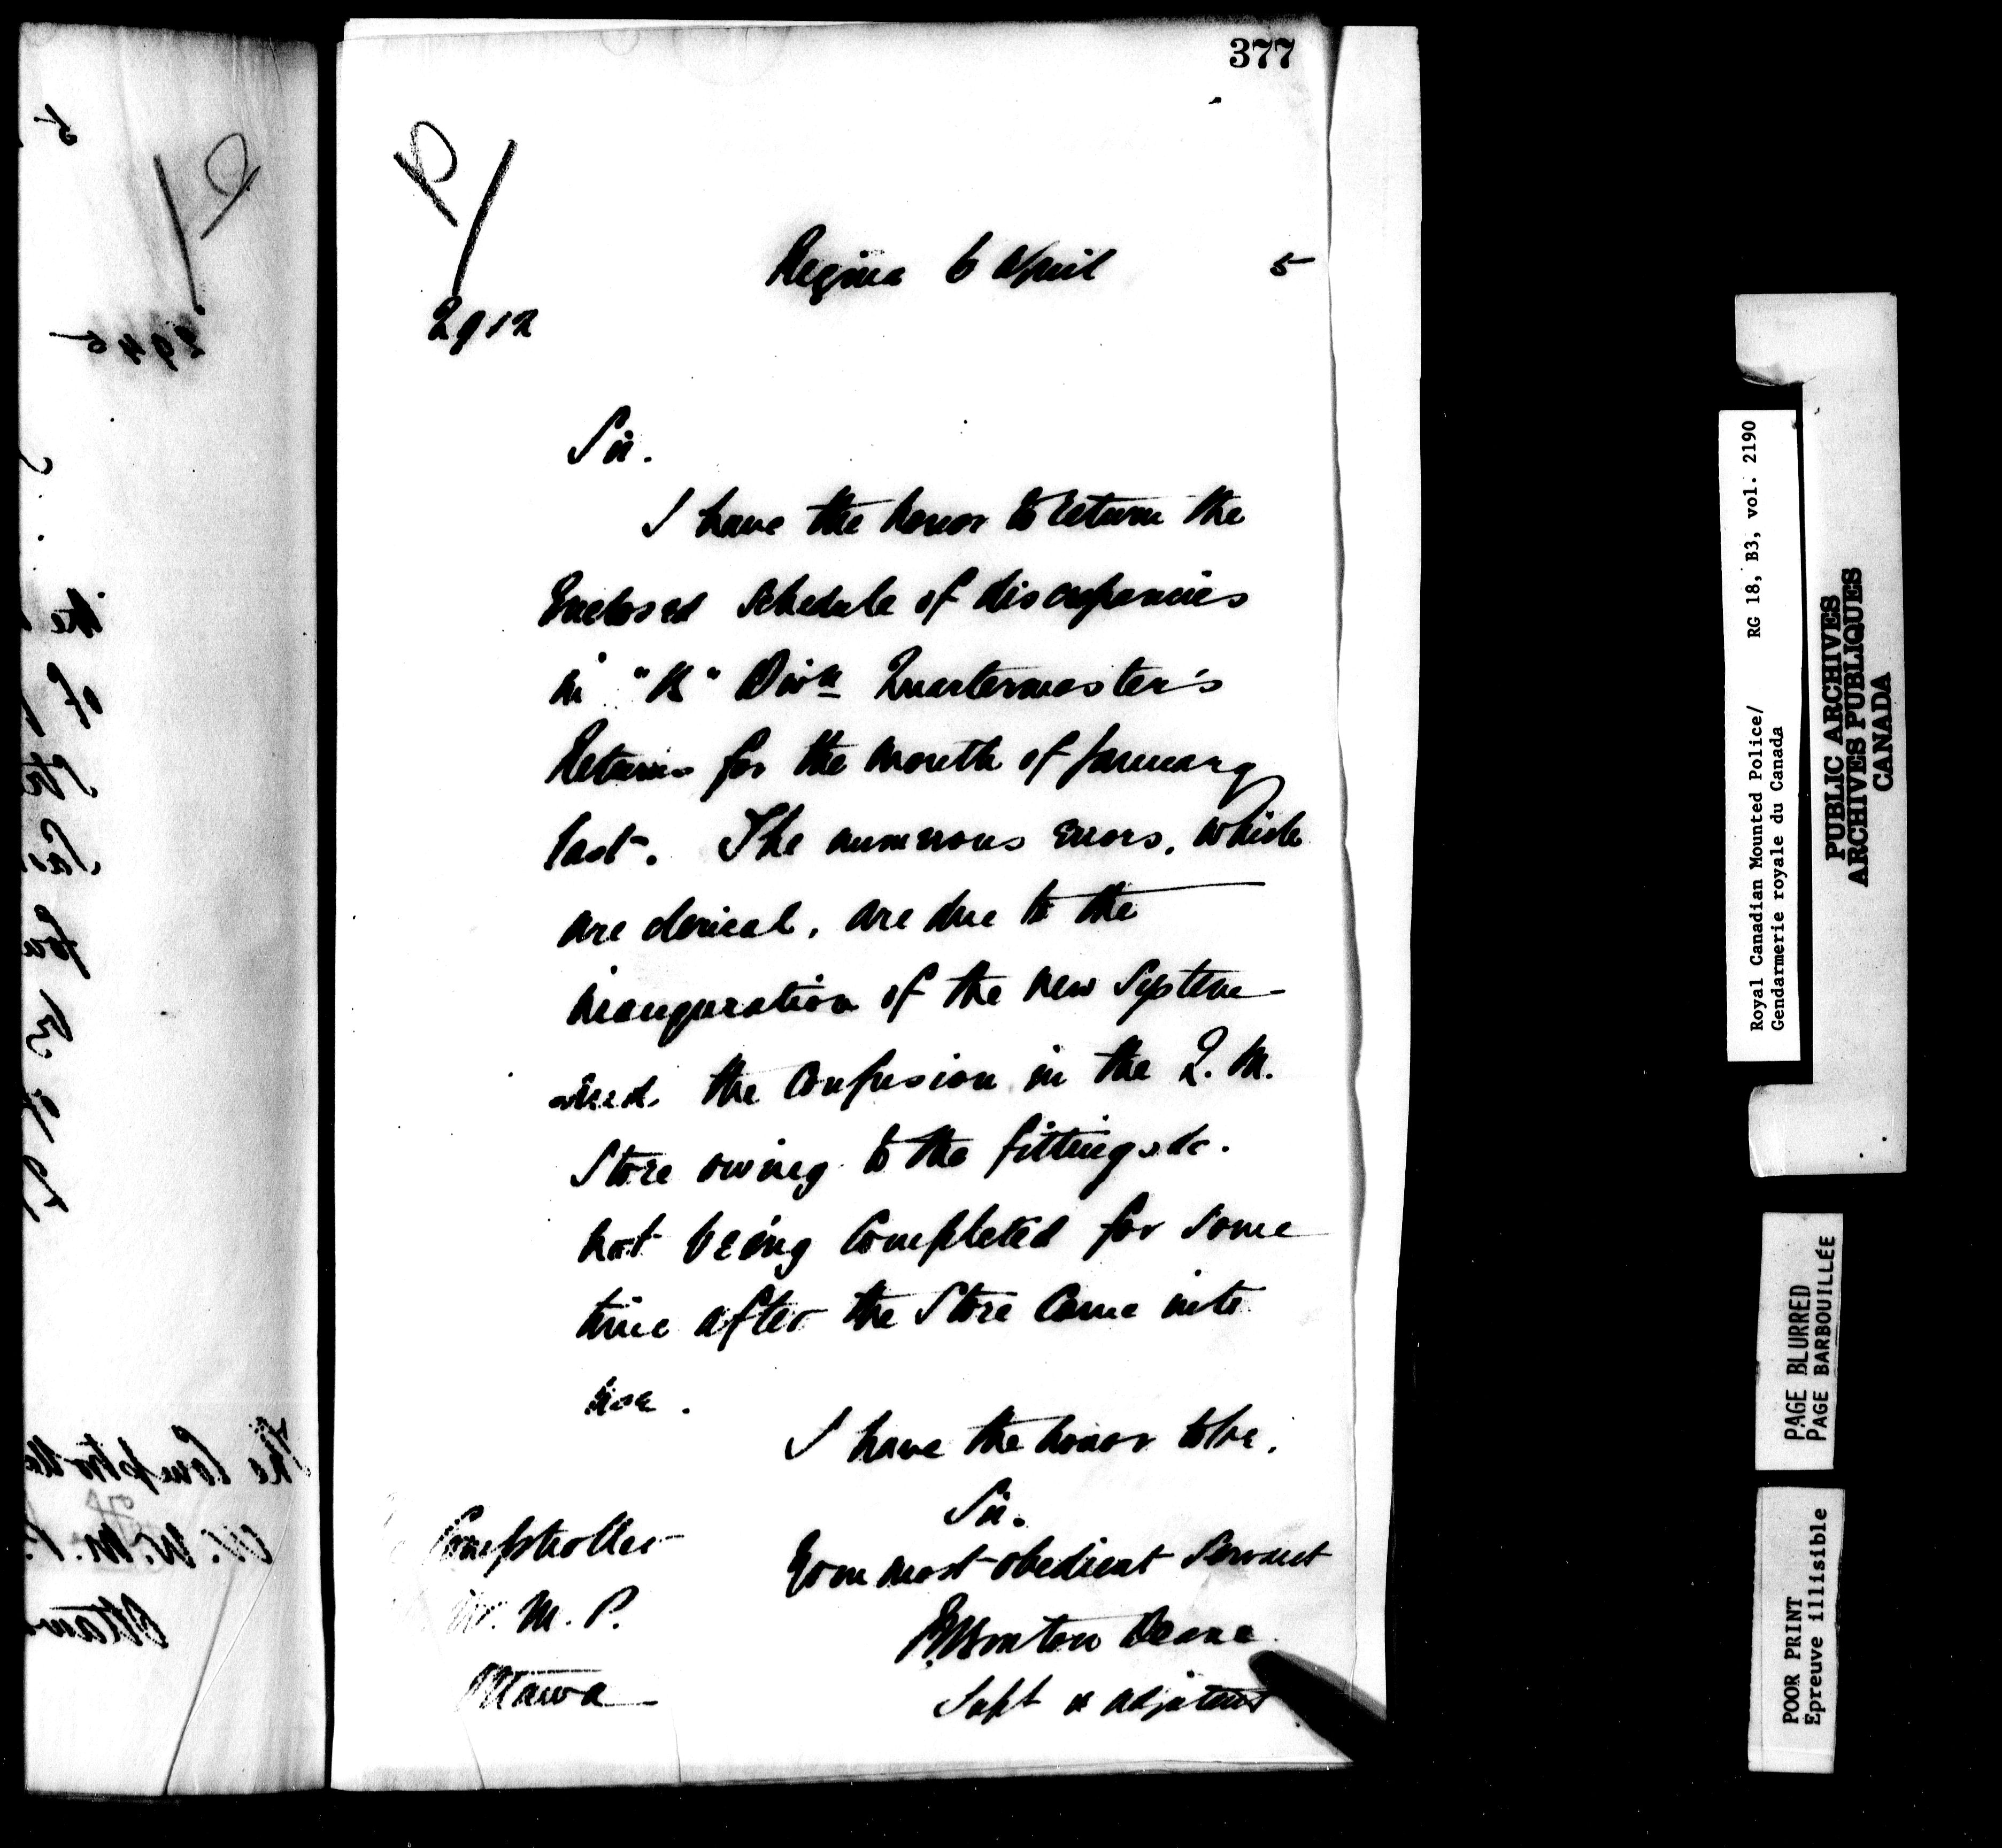 377
2912
Regina 6 April 5
Sir.
I have the honor to return the
Enclosed Schedule of discrepancies
in "K" Divn Quartermaster's
Returns for the month of January
last. The numerous errors, which
are clerical, are due to the
inauguration of the new System
and the confusion in the Q. M.
Store owing to the fittings &c.
not being completed for some
time after the Store came into
use.
I have the honor to be,
Sir.
Your most obedient Servant
R Burton Deane
Supt & Adjutant
Comptroller
W. M. P.
Ottawa
5
2945
the
of
The Comptroller
N. W. M. P.
Ottawa
Royal Canadian Mounted Police/ RG 18, B3, vol. 2190
Gendarmerie royale du Canada
PUBLIC ARCHIVES
ARCHIVES PUBLIQUES
CANADA
PAGE BLURRED
PAGE BARBOUILLÉE
POOR PRINT
Epreuve illisible